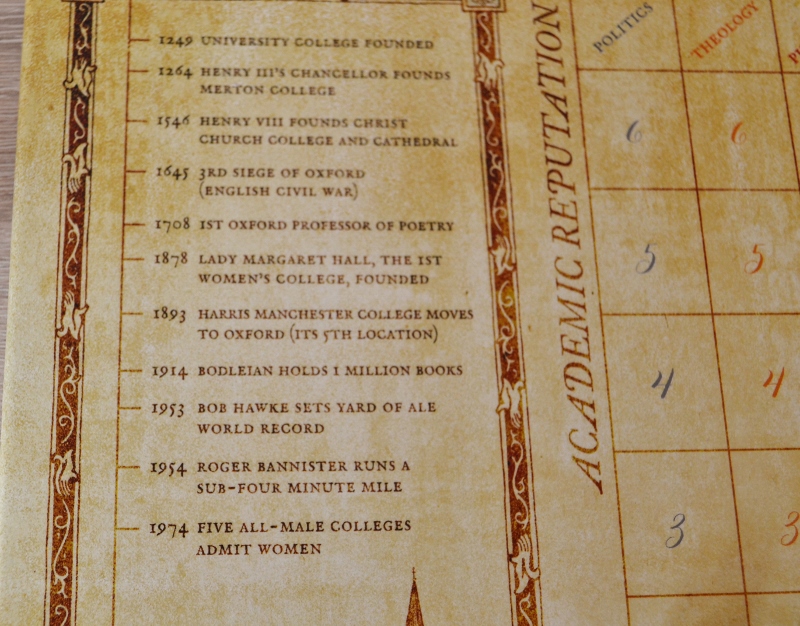 1249 UNIVERSITY COLLEGE FOUNDED
1264 HENRY III'S CHANCELLOR FOUNDS
MERTON COLLEGE
1546 HENRY VIII FOUNDS CHRIST
CHURCH COLLEGE AND CATHEDRAL
1645 3RD SIEGE OF OXFORD
(ENGLISH CIVIL WAR)
1708 1ST OXFORD PROFESSOR OF POETRY
1878 LADY MARGARET HALL, THE 1ST
WOMEN'S COLLEGE, FOUNDED
1893 HARRIS MANCHESTER COLLEGE MOVES
TO OXFORD (ITS 5TH LOCATION)
1914 BODLEIAN HOLDS 1 MILLION BOOKS
1953 BOB HAWKE SETS YARD OF ALE
WORLD RECORD
1954 ROGER BANNISTER RUNS A
SUB-FOUR MINUTE MILE
1974 FIVE ALL-MALE COLLEGES
ADMIT WOMEN
ACADEMIC REPUTATION
POLITICS
THEOLOGY
6 6
5 5
4 4
3 3